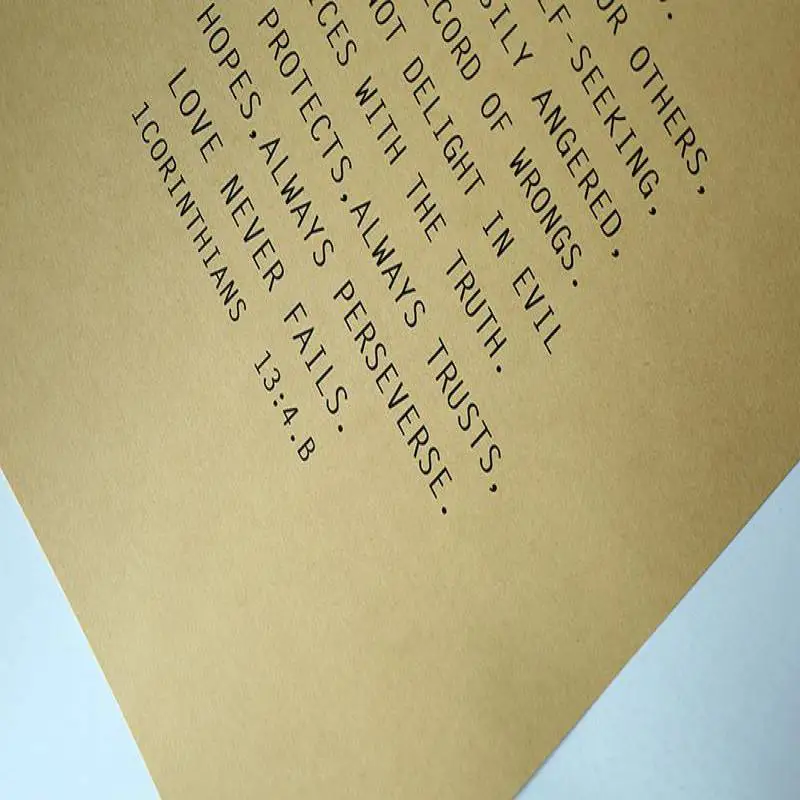 OR OTHERS,
LF-SEEKING,
SILY ANGERED,
ECORD OF WRONGS.
NOT DELIGHT IN EVIL
ICES WITH THE TRUTH.
PROTECTS,ALWAYS TRUSTS,
HOPES,ALWAYS PERSEVERSE.
LOVE NEVER FAILS.
1CORINTHIANS 13:4.B